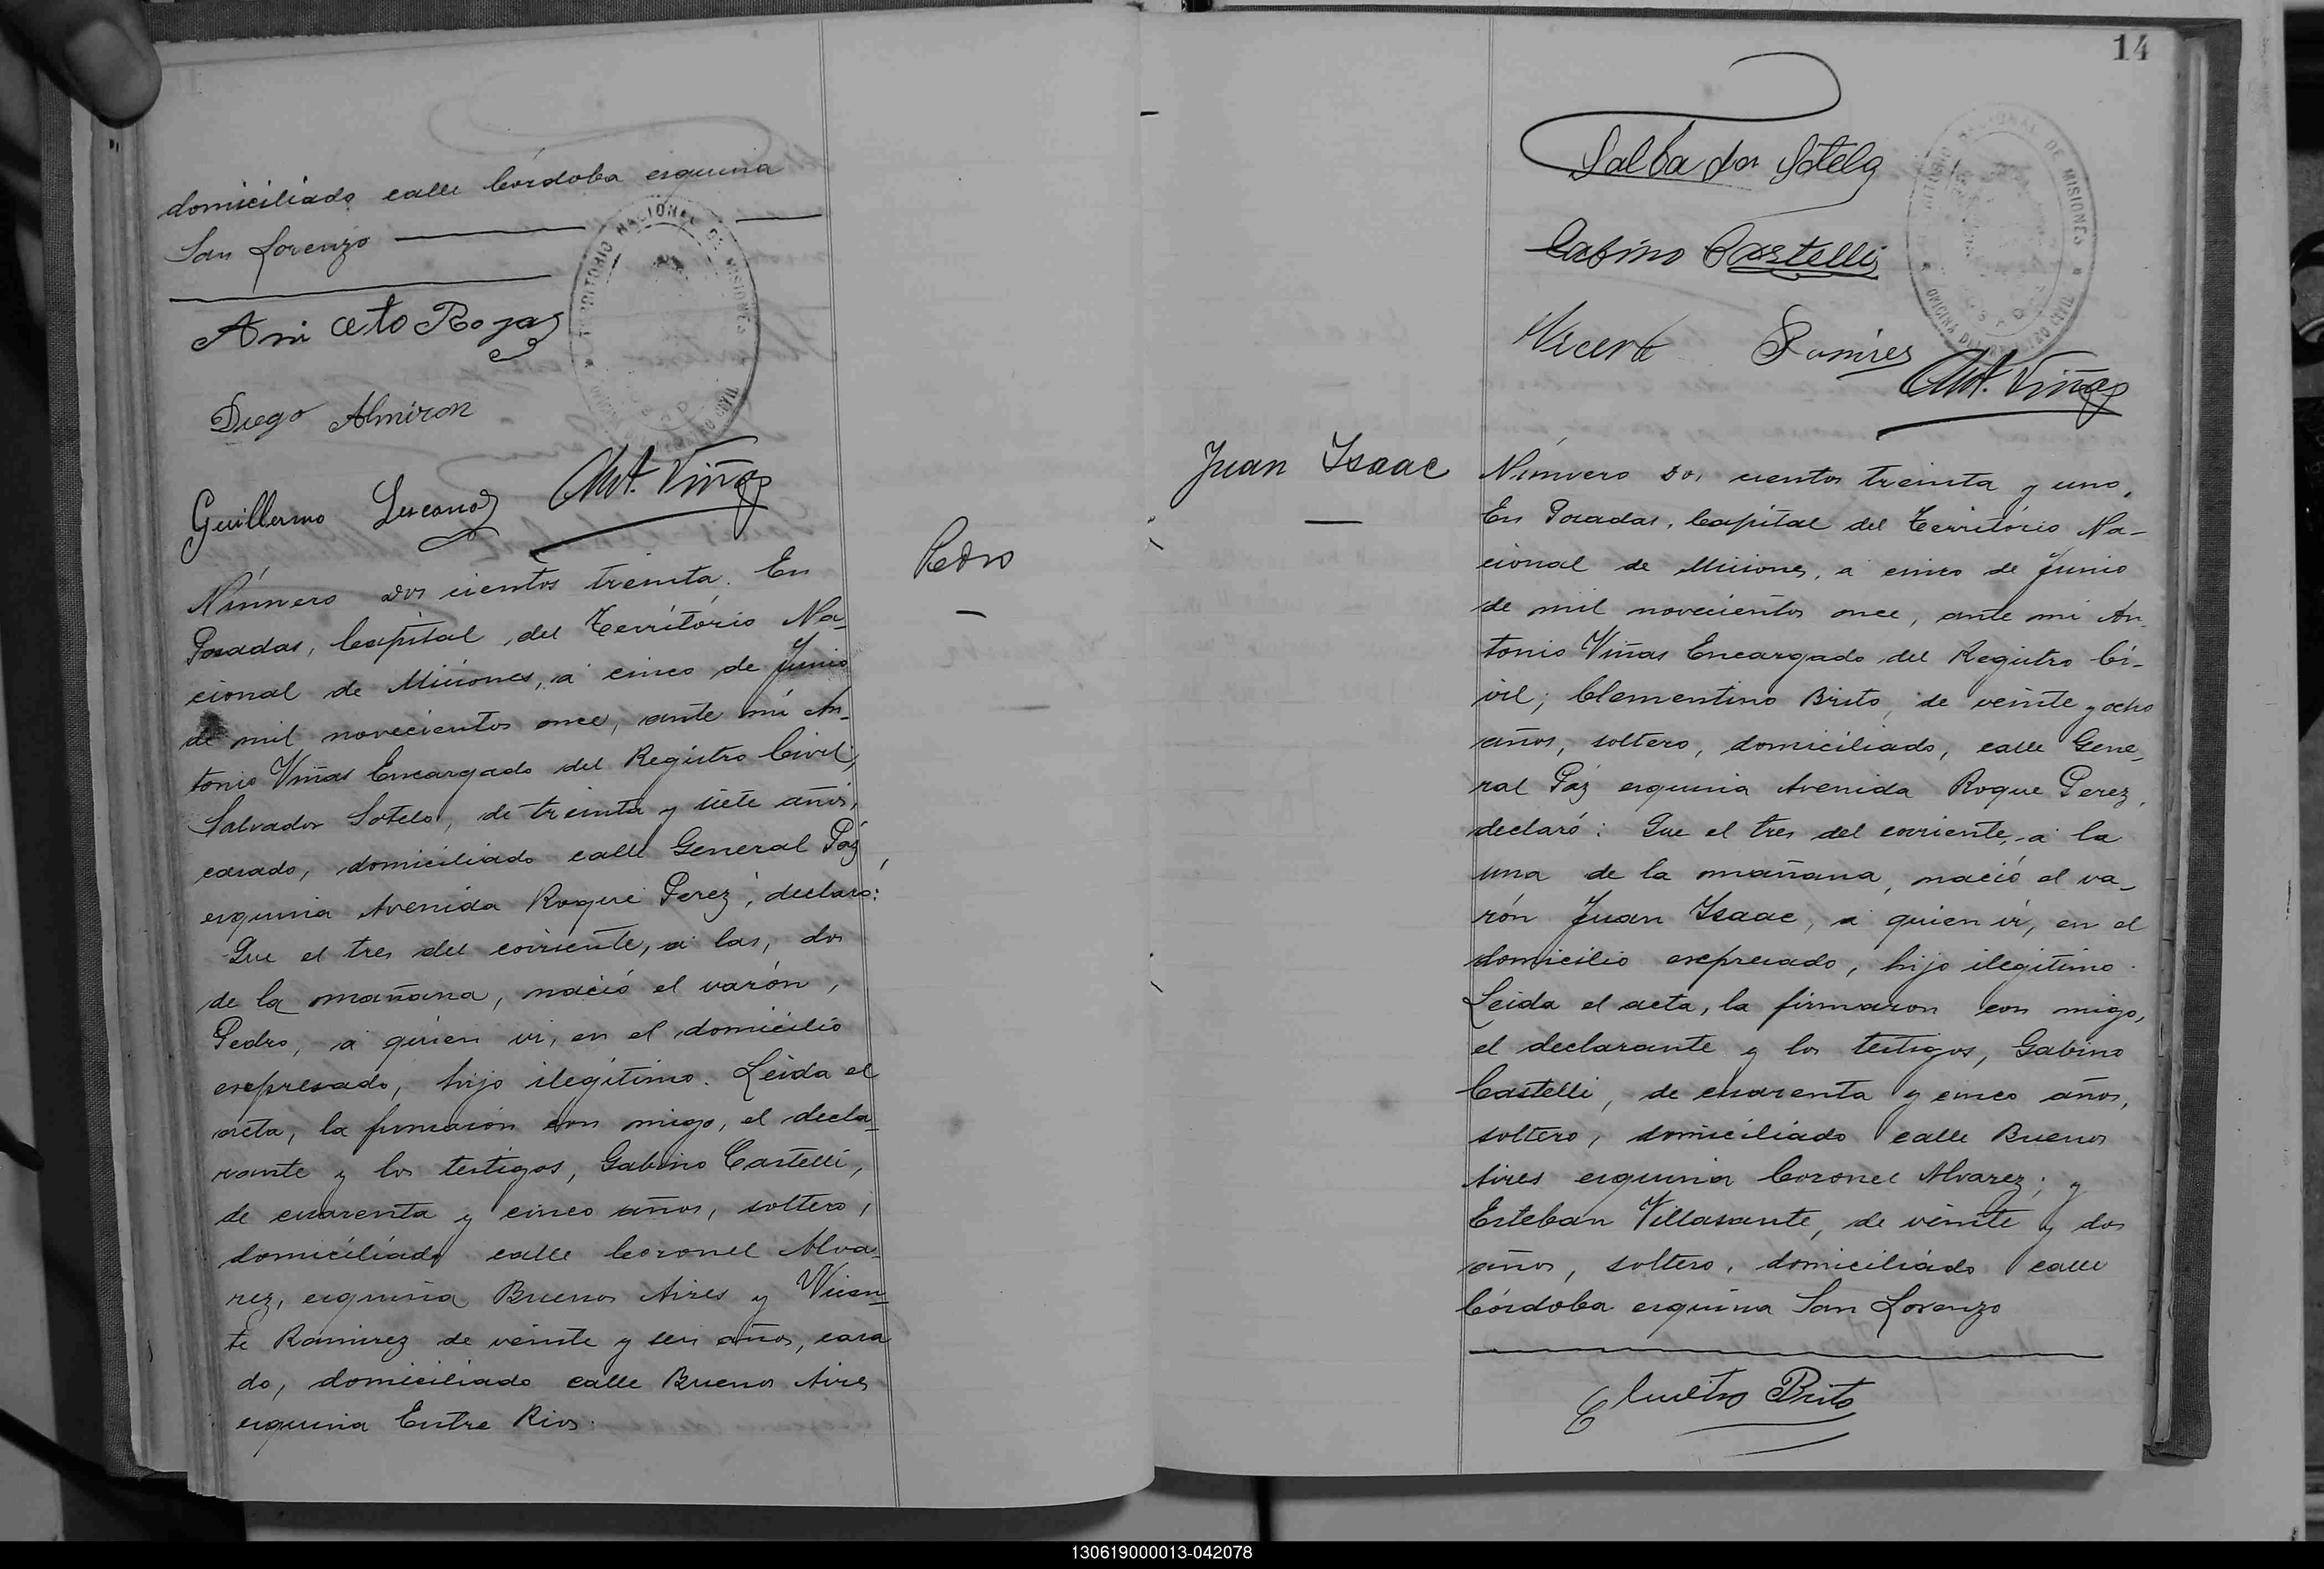 domiciliado calle Córdoba esquina
San Lorenzo
Aniceto Rojas
Diego Almiron
Guillermo Lescano
Ant. Viñas
Número dos cientos treinta. En
Posadas, Capital del Território Na-
cional de Misiones, a cinco de Junio
de mil novecientos once, ante mí An-
tonio Viñas Encargado del Registro Civil,
Salvador Sotelo, de treinta y siete años,
casado, domiciliado calle General Páz
esquina Avenida Roque Perez, declaró:
Que el tres del corriente, a las, dos
de la mañana, nació el varón,
Pedro, a quien vi, en el domicilio
expresado, hijo ilegítimo. Leida el
acta, la firmaron con migo, el decla-
rante y los testigos, Gabino Castelli,
de cuarenta y cinco años, soltero,
domiciliado calle Coronel Alva-
rez, esquina Buenos Aires y Vicen-
te Ramirez de veinte y seis años, casa
do, domiciliado calle Buenos Aires
esquina Entre Rios.
Pedro
14
Salbador Sotelo
Gabino Castelli
Vicente Ramires
Ant. Viñas
TERRITORIO NACIONAL DE MISIONES
OFICINA DEL REGISTRO CIVIL
Juan Isaac
Número dos cientos treinta y uno.
En Posadas, Capital del Território Na-
cional de Misiones, a cinco de Junio
de mil novecientos once, ante mi An-
tonio Viñas Encargado del Registro Ci-
vil; Clementino Brito, de veinte y ocho
años, soltero, domiciliado, calle Gene-
ral Páz esquina Avenida Roque Perez,
declaró: Que el tres del corriente, a la
una de la mañana, nació el va-
rón Juan Isaac, a quien vi, en el
domicilio expresado, hijo ilegitimo.
Leida el acta, la firmaron con migo,
el declarante y los testigos, Gabino
Castelli, de cuarenta y cinco años,
soltero, domiciliado calle Buenos
Aires esquina Coronel Alvarez; y
Esteban Villasante, de veinte y dos
años, soltero, domiciliado calle
Córdoba esquina San Lorenzo
Brito
130619000013-042078